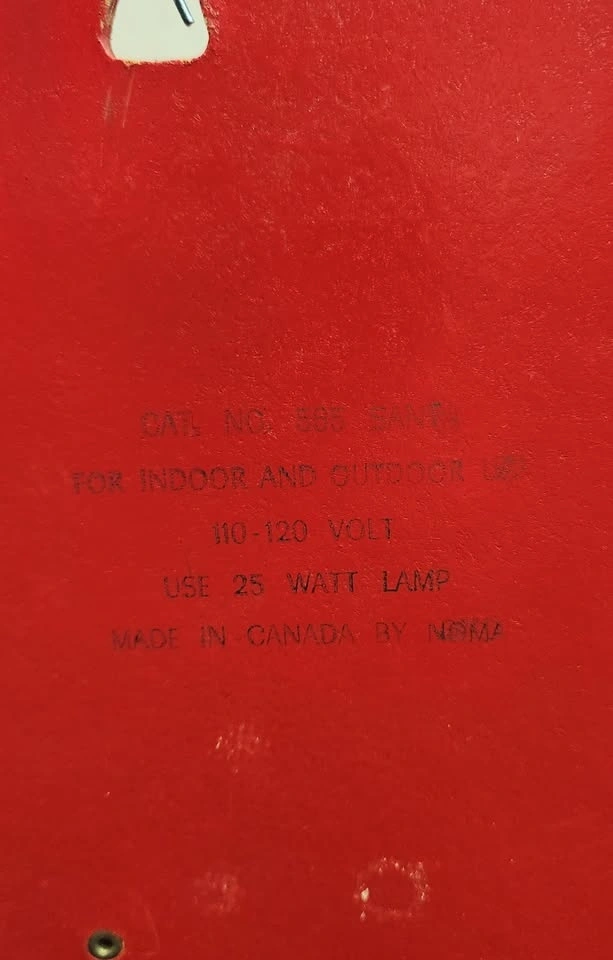 CAT. NO. SANTA
FOR INDOOR AND OUTDOOR USE
110-120 VOLT
USE 25 WATT LAMP
MADE IN CANADA BY NOMA